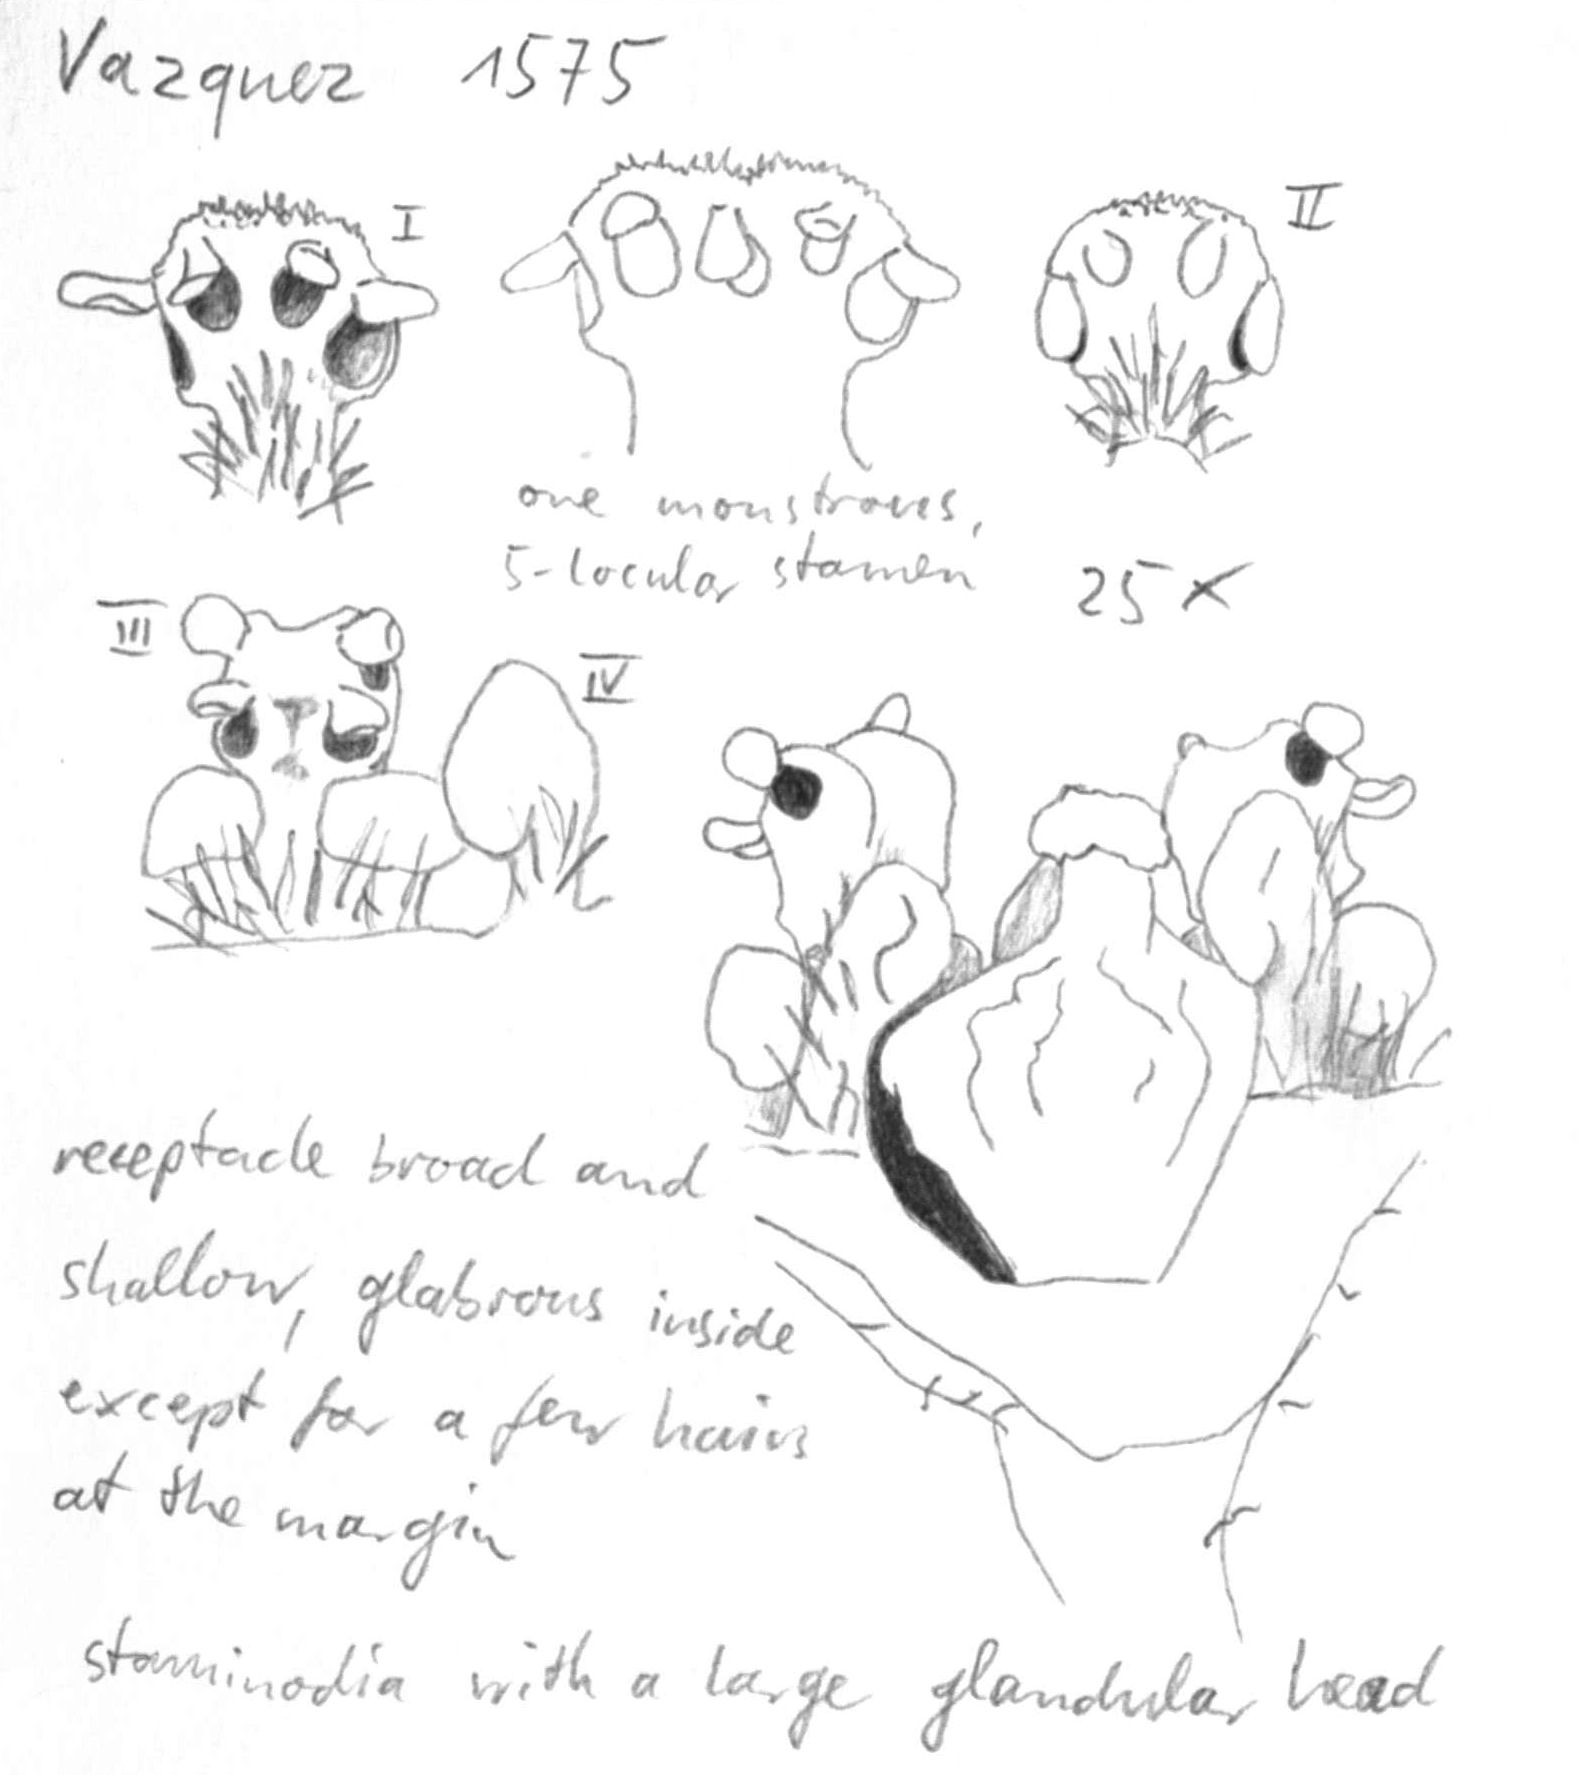 Vazquez 1575
I
II
one monstroues,
5-locular stamen
25 x
III
IV
receptacle broad and
shallow, glabrous inside
except for a few hairs
at the margin
staminodia with a large glandular head